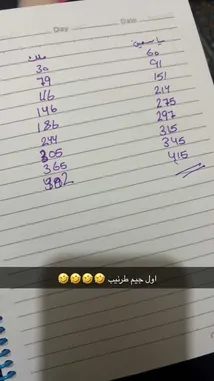 Day Date
ملك ياسمين
30 60
79 91
116 151
146 214
186 275
244 297
305 315
365 345
392 415
اول جيم طرنيب 🤣🤣🤣🤣